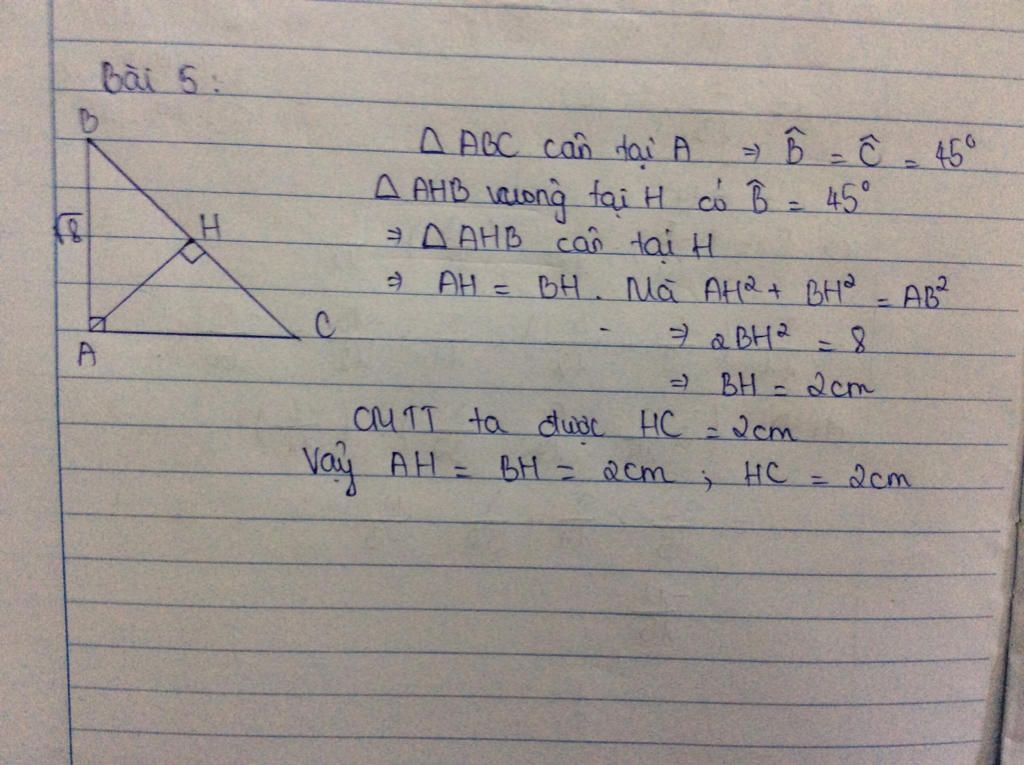 Bài 5 :
B
△ ABC cân tại A ⇒ B̂ = Ĉ = 45°
△ AHB vuông tại H có B̂ = 45°
√8
H
⇒ △ AHB cân tại H
⇒ AH = BH . Mà AH² + BH² = AB²
C
A
⇒ 2BH² = 8
⇒ BH = 2cm
CMTT ta được HC = 2cm
Vậy AH = BH = 2cm ; HC = 2cm